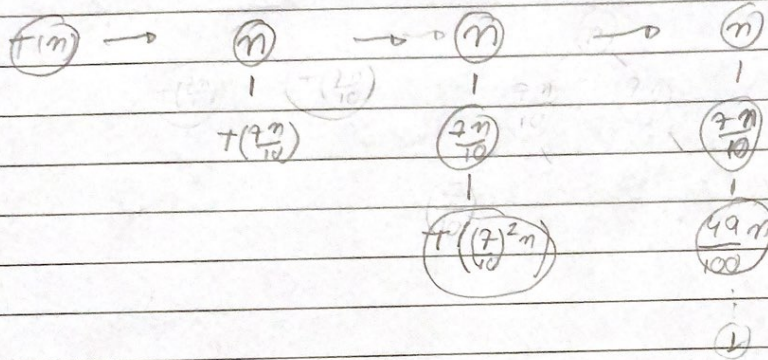 T(n) → n → n → n
T(7n/10) 7n/10 7n/10
T((7/10)²n) 49n/100
1